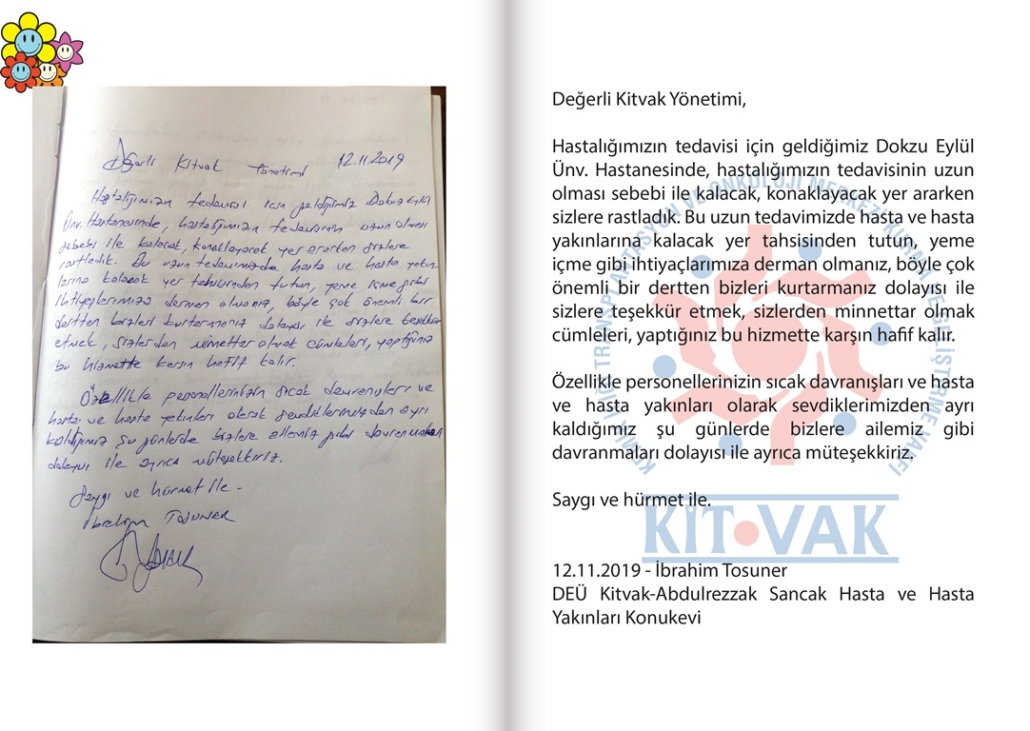 Değerli Kitvak Yönetimi 12.11.2019
Hastalığımızın tedavisi için geldiğimiz Dokuz Eylül
Ünv. Hastanesinde, hastalığımızın tedavisinin uzun olması
sebebi ile kalacak, konaklayacak yer ararken sizlere
rastladık. Bu uzun tedavimizde hasta ve hasta yakın
larına kalacak yer tahsisinden tutun, yeme içme gibi
ihtiyaçlarımıza derman olmanız, böyle çok önemli bir
dertten bizleri kurtarmanız dolayısı ile sizlere teşekkür
etmek, sizlerden minnettar olmak cümleleri, yaptığınız
bu hizmette karşın hafif kalır.
Özellikle personellerinizin sıcak davranışları ve
hasta ve hasta yakınları olarak sevdiklerimizden ayrı
kaldığımız şu günlerde bizlere ailemiz gibi davranmaları
dolayısı ile ayrıca müteşekkiriz.
Saygı ve hürmet ile.
İbrahim Tosuner
Değerli Kitvak Yönetimi,
Hastalığımızın tedavisi için geldiğimiz Dokzu Eylül
Ünv. Hastanesinde, hastalığımızın tedavisinin uzun
olması sebebi ile kalacak, konaklayacak yer ararken
sizlere rastladık. Bu uzun tedavimizde hasta ve hasta
yakınlarına kalacak yer tahsisinden tutun, yeme
içme gibi ihtiyaçlarımıza derman olmanız, böyle çok
önemli bir dertten bizleri kurtarmanız dolayısı ile
sizlere teşekkür etmek, sizlerden minnettar olmak
cümleleri, yaptığınız bu hizmette karşın hafif kalır.
Özellikle personellerinizin sıcak davranışları ve hasta
ve hasta yakınları olarak sevdiklerimizden ayrı
kaldığımız şu günlerde bizlere ailemiz gibi
davranmaları dolayısı ile ayrıca müteşekkiriz.
Saygı ve hürmet ile.
KİT VAK
12.11.2019 - İbrahim Tosuner
DEÜ Kitvak-Abdulrezzak Sancak Hasta ve Hasta
Yakınları Konukevi